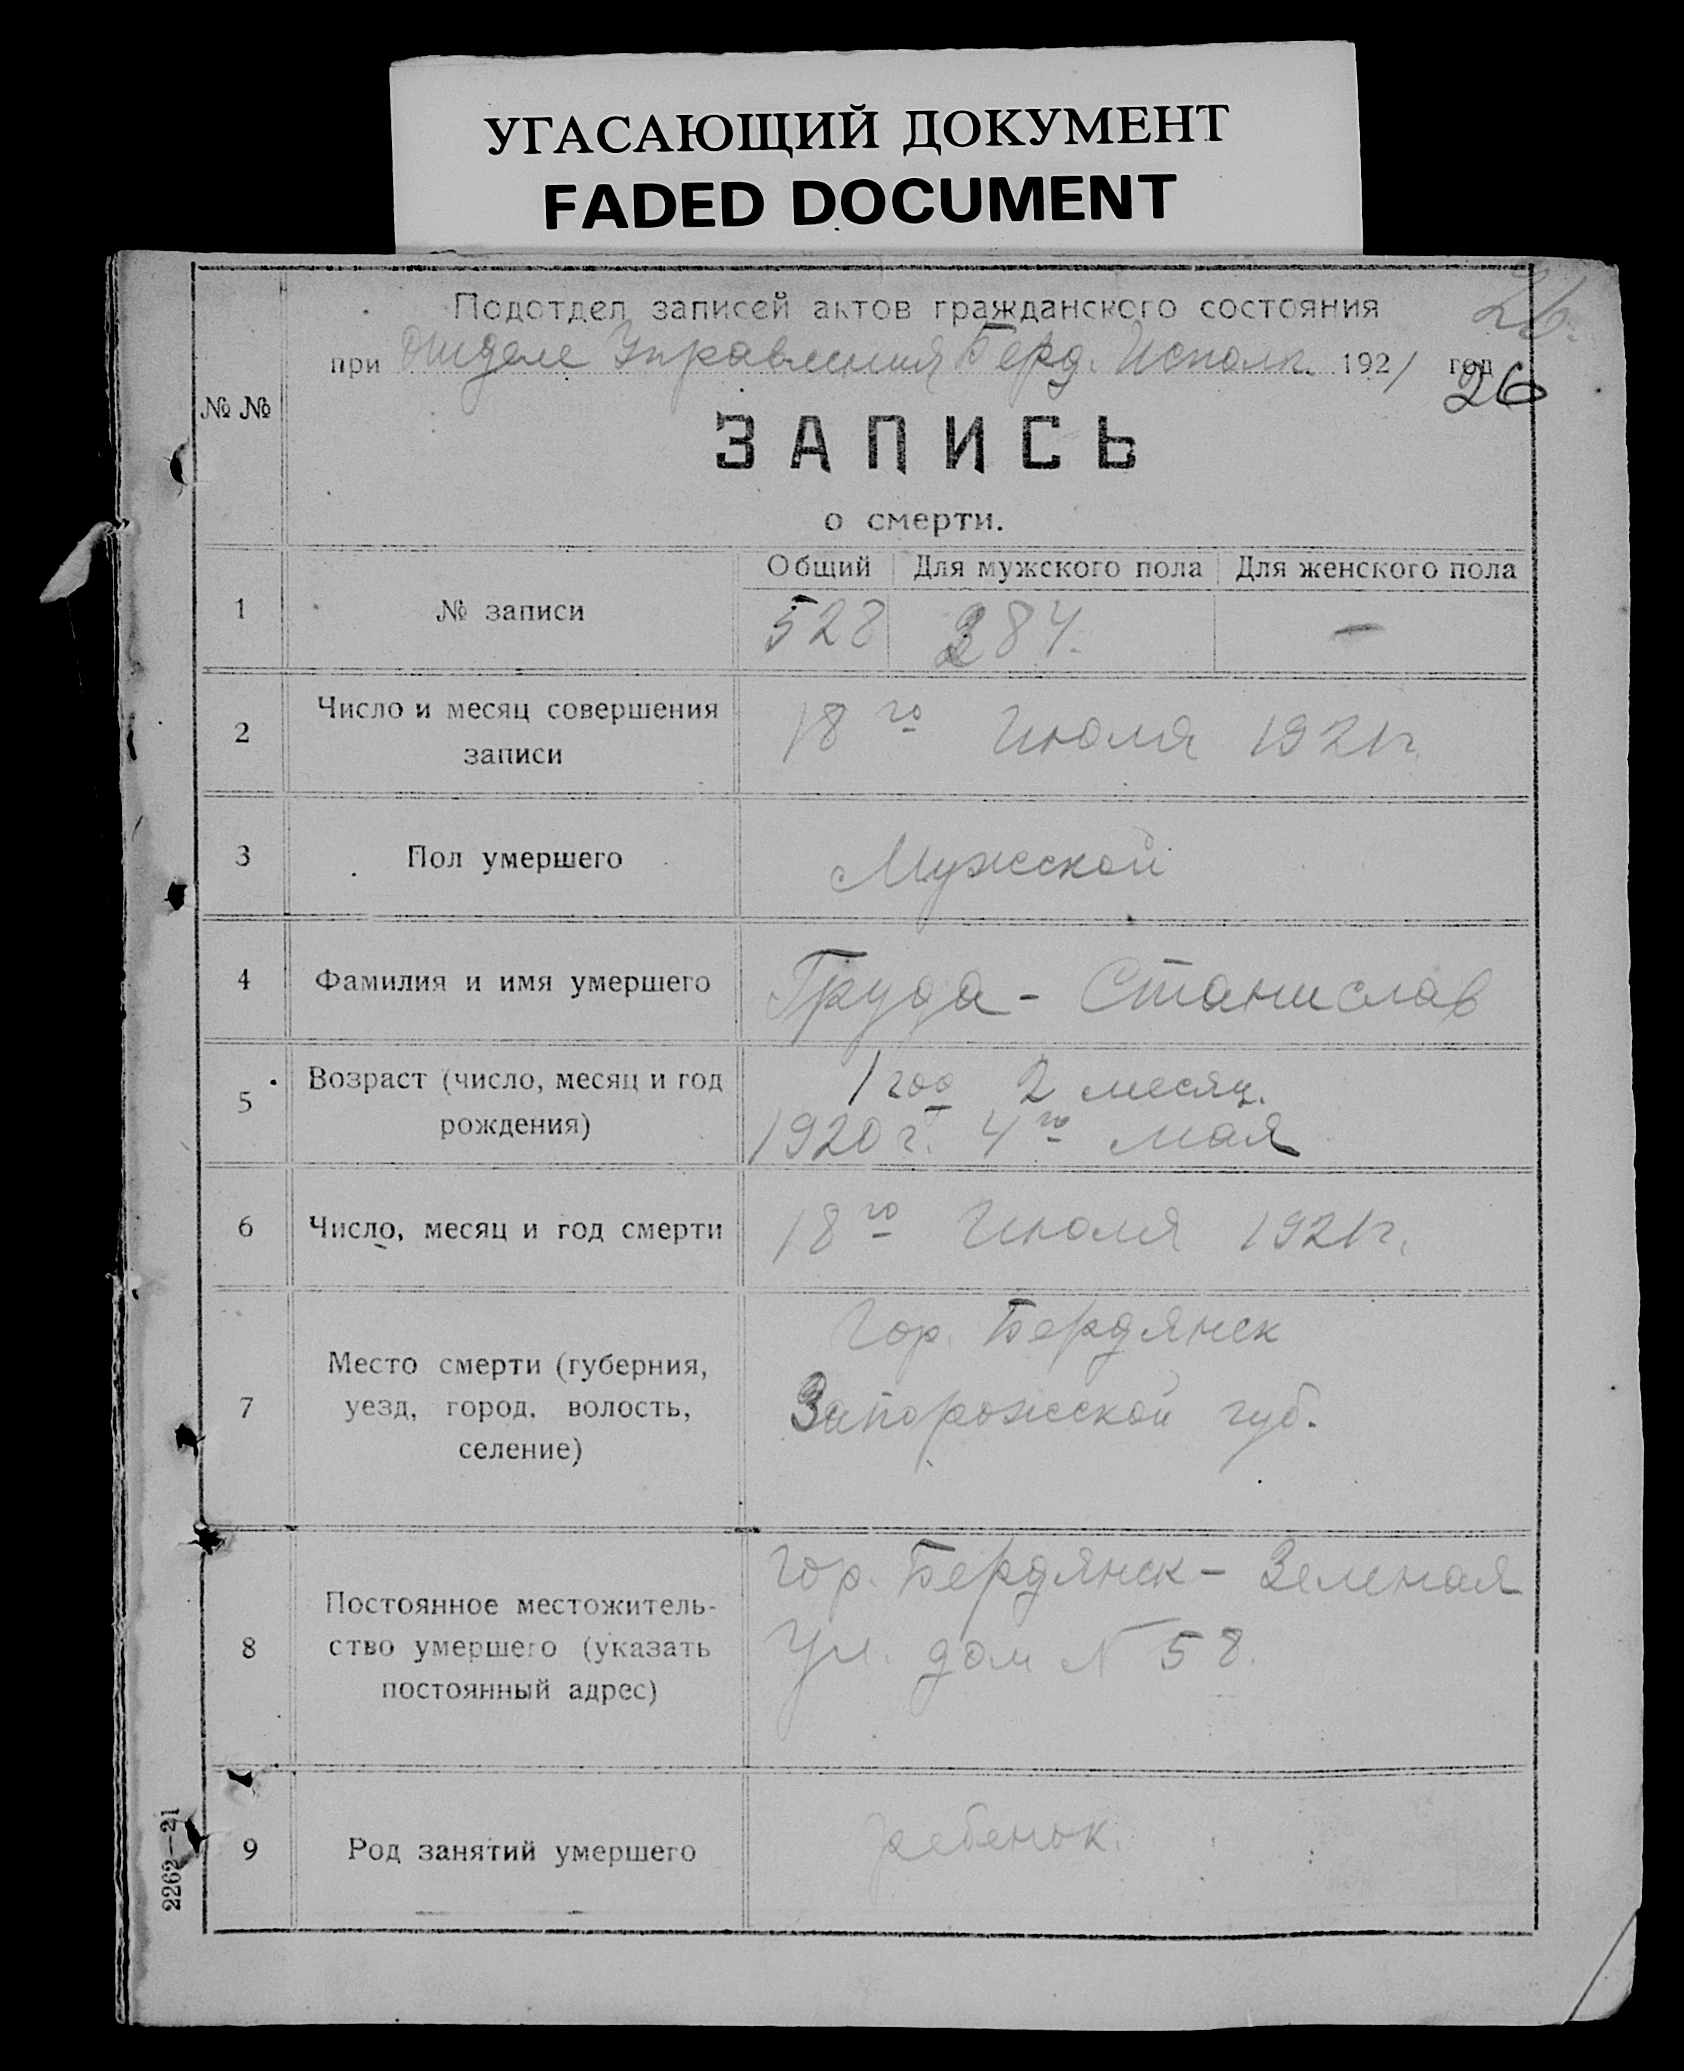 УГАСАЮЩИЙ ДОКУМЕНТ
FADED DOCUMENT
26.
Подотдел записей актов гражданского состояния
при Отделе Управления Берд. Исполк. 1921 год
26
№ №
ЗАПИСЬ
о смерти.
Общий Для мужского пола Для женского пола
1 № записи 528 284. —
2 Число и месяц совершения
записи
18го Июля 1921г.
3 Пол умершего Мужской
4 Фамилия и имя умершего Груда - Станислав
5 Возраст (число, месяц и год
рождения)
1 год 2 месяц.
1920 г. 4го мая
6 Число, месяц и год смерти 18го Июля 1921г.
7 Место смерти (губерния,
уезд, город, волость,
селение)
Гор. Бердянск
Запорожской губ.
8 Постоянное местожитель-
ство умершего (указать
постоянный адрес)
Гор. Бердянск - Зеленая
Ул. дом № 58.
9 Род занятий умершего ребенок.
2262—21